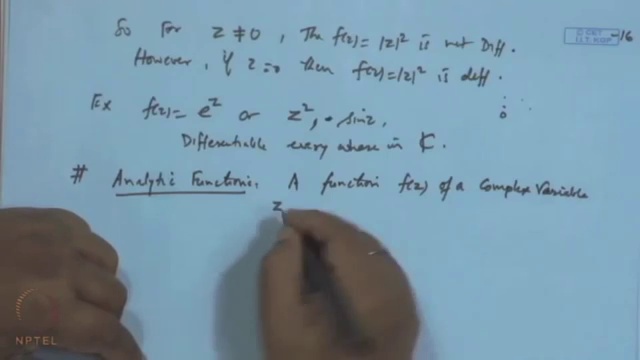 So For z ≠ 0, The f(z) = |z|² is not Diff.
However, if z = 0 then f(z) = |z|² is diff.
Ex f(z) = e^z or z², sin z,
Differentiable every where in ℂ.
# Analytic Function: A function f(z) of a Complex Variable
z
NPTEL